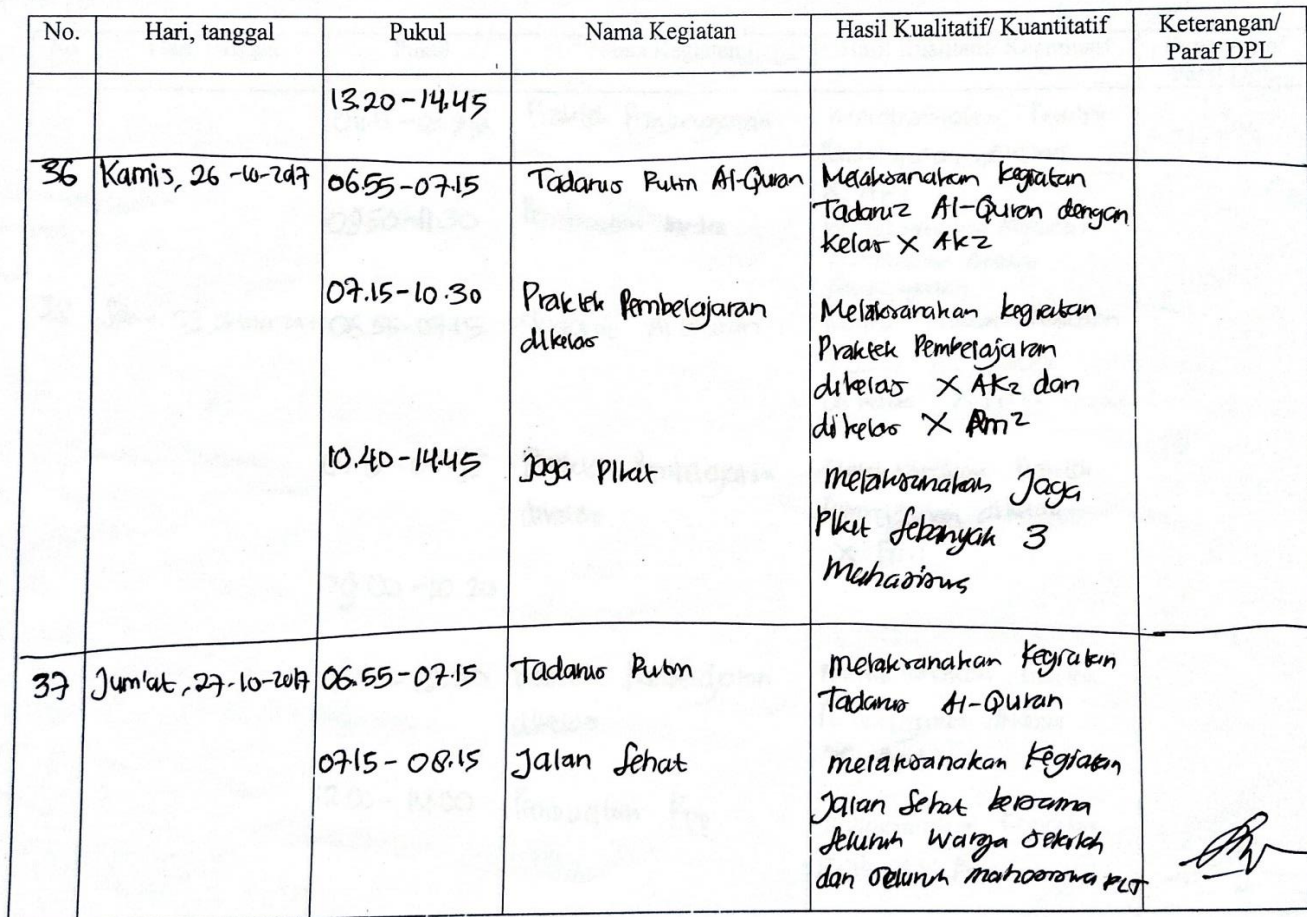 No. Hari, tanggal Pukul Nama Kegiatan Hasil Kualitatif/ Kuantitatif Keterangan/
Paraf DPL
13.20-14.45
36 Kamis, 26-10-2017 06.55-07.15 Tadarus Rutin Al-Quran Melaksanakan kegiatan
Tadaruz Al-Quran dengan
kelas X AK2
07.15-10.30 Praktek Pembelajaran Melaksanakan kegiatan
dikelas Praktek Pembelajaran
dikelas X AK2 dan
dikelas X Pm2
10.40-14.45 Jaga Piket melaksanakan Jaga
Piket Sebanyak 3
Mahasiswa
37 Jum'at, 27-10-2017 06.55-07.15 Tadarus Rutin melaksanakan kegiatan
Tadarus Al-Quran
07.15-08.15 Jalan Sehat melaksanakan kegiatan
Jalan Sehat bersama
Seluruh Warga Sekolah
dan seluruh mahasiswa PLT